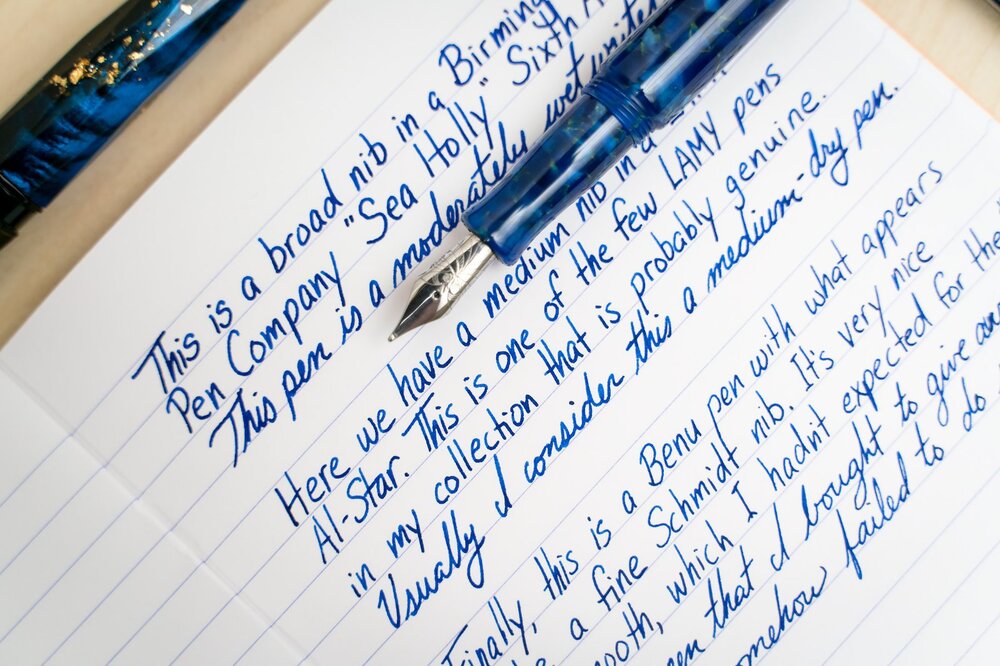 This is a broad nib in a Birming
Pen Company "Sea Holly" Sixth
This pen is a moderately wet writer
Here we have a medium nib in a
Al-Star. This is one of the few LAMY pens
in my collection that is probably genuine.
Usually I consider this a medium-dry pen.
Finally, this is a Benu pen with what appears
a fine Schmidt nib. It's very nice
ooth, which I hadn't expected for the
en that I bought to give an
omehow failed to do